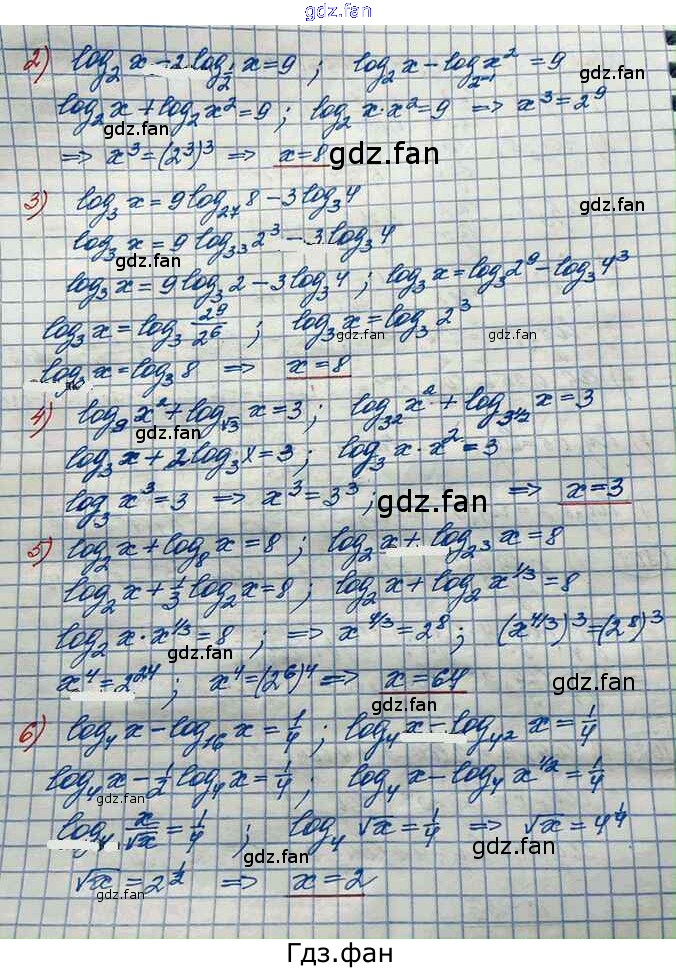 gdz.fan
2) log₂ x − 2 log_{1/2} x = 9 ; log₂ x − log_{2^{-1}} x² = 9
gdz.fan
log₂ x + log₂ x² = 9 ; log₂ x·x² = 9 ⇒ x³ = 2⁹
gdz.fan gdz.fan
⇒ x³ = (2³)³ ⇒ x = 8
gdz.fan
3) log₃ x = 9 log₂₇ 8 − 3 log₃ 4
gdz.fan
log₃ x = 9 log_{3³} 2³ − 3 log₃ 4
gdz.fan
log₃ x = 9 log₃ 2 − 3 log₃ 4 ; log₃ x = log₃ 2⁹ − log₃ 4³
log₃ x = log₃ 2⁹/2⁶ ; log₃ x = log₃ 2³
gdz.fan gdz.fan
log₃ x = log₃ 8 ⇒ x = 8
4) log₉ x² + log_{√3} x = 3 ; log_{3²} x² + log_{3^{1/2}} x = 3
gdz.fan gdz.fan
log₃ x + 2 log₃ x = 3 ; log₃ x·x² = 3
log₃ x³ = 3 ⇒ x³ = 3³ ; ⇒ x = 3
gdz.fan
5) log₂ x + log₈ x = 8 ; log₂ x + log_{2³} x = 8
gdz.fan gdz.fan
log₂ x + 1/3 log₂ x = 8 ; log₂ x + log₂ x^{1/3} = 8
log₂ x·x^{1/3} = 8 ; ⇒ x^{4/3} = 2⁸ ; (x^{4/3})³ = (2⁸)³
gdz.fan
x⁴ = 2²⁴ ; x⁴ = (2⁶)⁴ ⇒ x = 64
gdz.fan
6) log₄ x − log₁₆ x = 1/4 ; log₄ x − log_{4²} x = 1/4
gdz.fan
log₄ x − 1/2 log₄ x = 1/4 ; log₄ x − log₄ x^{1/2} = 1/4
log₄ x/√x = 1/4 ; log₄ √x = 1/4 ⇒ √x = 4^{1/4}
gdz.fan gdz.fan
√x = 2^{1/2} ⇒ x = 2
gdz.fan
Гдз.фан